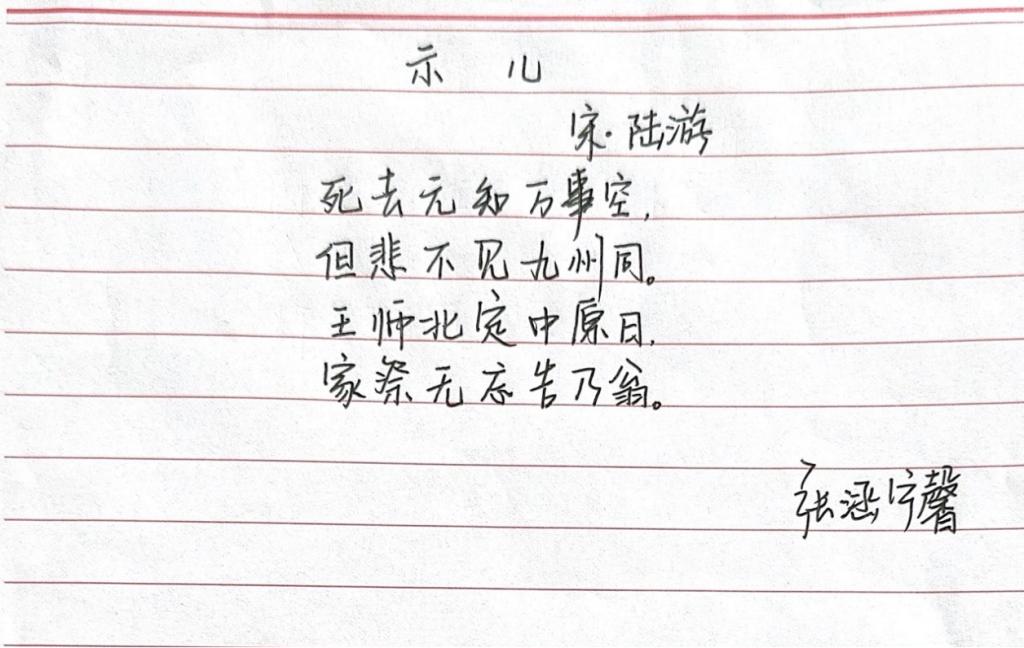 示儿
宋·陆游
死去元知万事空,
但悲不见九州同。
王师北定中原日,
家祭无忘告乃翁。
张涵宁馨